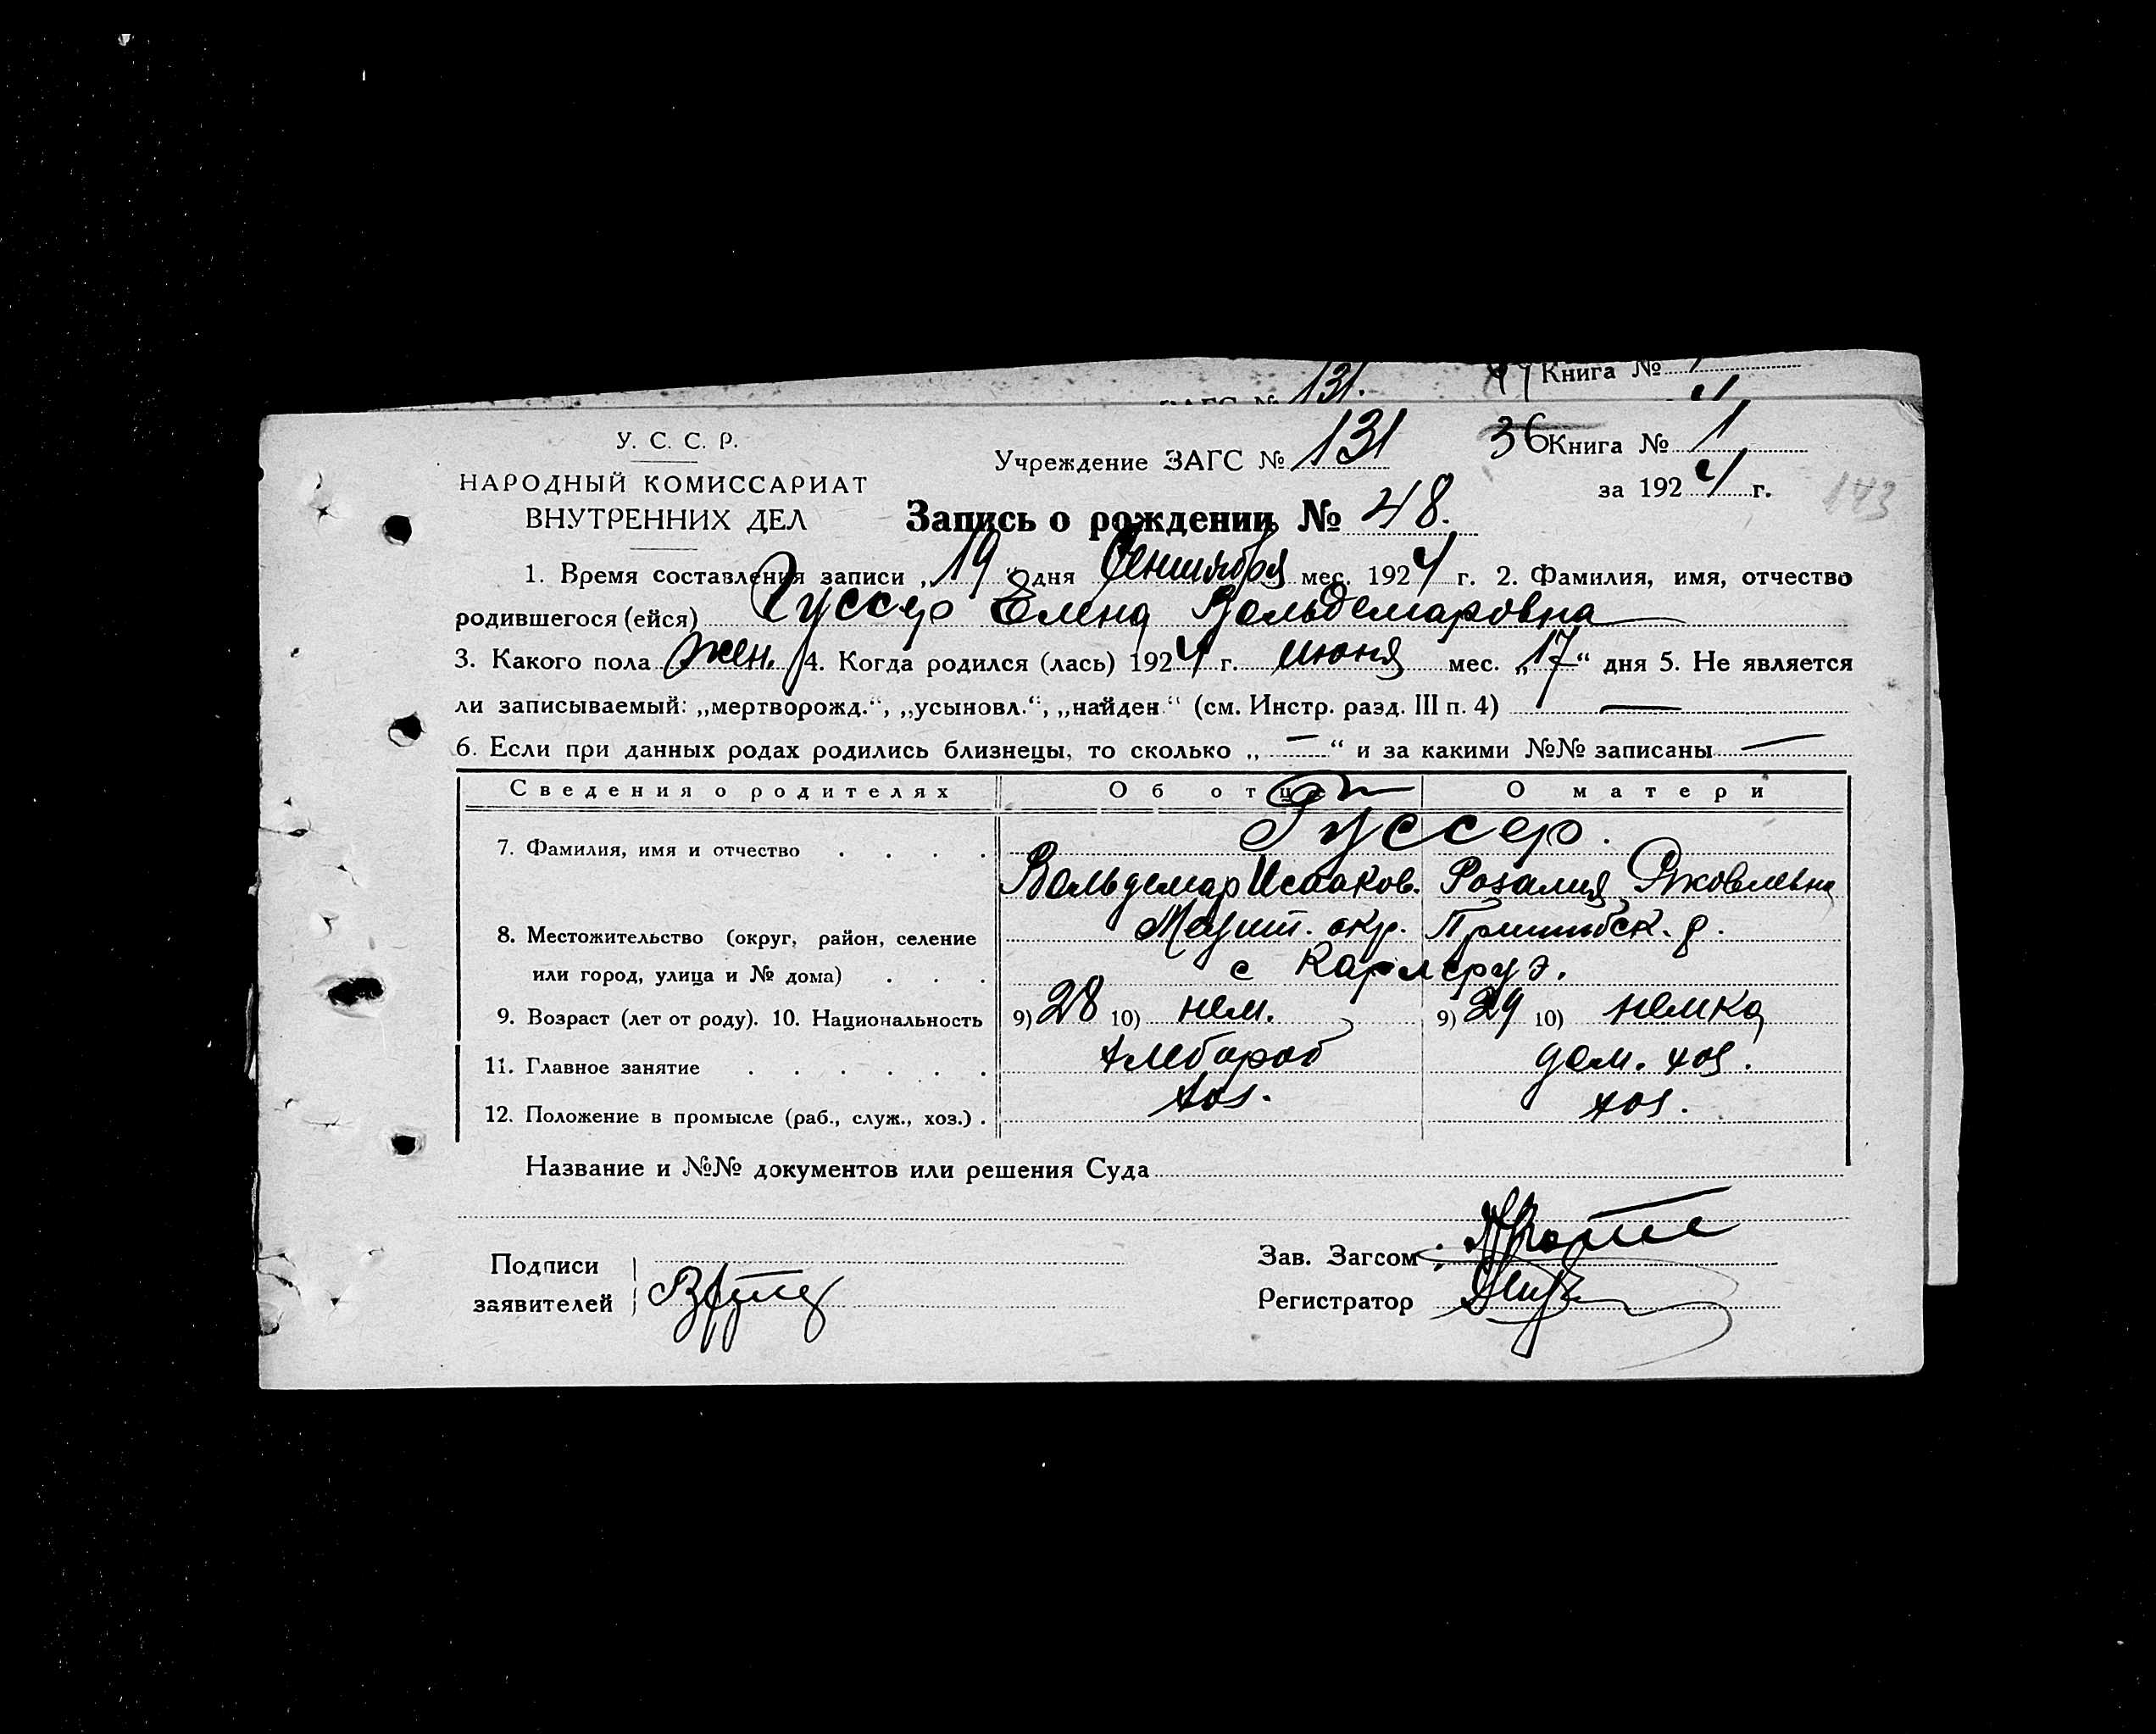 131. 44 Книга №
ЗАГС №
У. С. С. Р.
Учреждение ЗАГС № 131 36 Книга № 1
НАРОДНЫЙ КОМИССАРИАТ за 1924 г. 143
ВНУТРЕННИХ ДЕЛ Запись о рождении № 48.
1. Время составления записи „19“ дня Сентября мес. 1924 г. 2. Фамилия, имя, отчество
родившегося (ейся) Гуссер Елена Вольдемаровна
3. Какого пола жен. 4. Когда родился (лась) 1924 г. июня мес. „17“ дня 5. Не является
ли записываемый: „мертворожд.“, „усыновл.“, „найден“ (см. Инстр. разд. III п. 4) —
6. Если при данных родах родились близнецы, то сколько „—“ и за какими №№ записаны —
Сведения о родителях Об отце О матери
Гуссер.
7. Фамилия, имя и отчество . . . .
Вольдемар Исааков. Розалия Яковлевна
8. Местожительство (округ, район, селение Мелит. окр. Пришибск. р.
или город, улица и № дома) . . . с Карлсруэ.
9. Возраст (лет от роду). 10. Национальность 9) 28 10) нем. 9) 29 10) немка
11. Главное занятие . . . . . . хлебороб дом. хоз.
12. Положение в промысле (раб., служ., хоз.) . хоз. хоз.
Название и №№ документов или решения Суда
Подписи Зав. Загсом
заявителей Регистратор